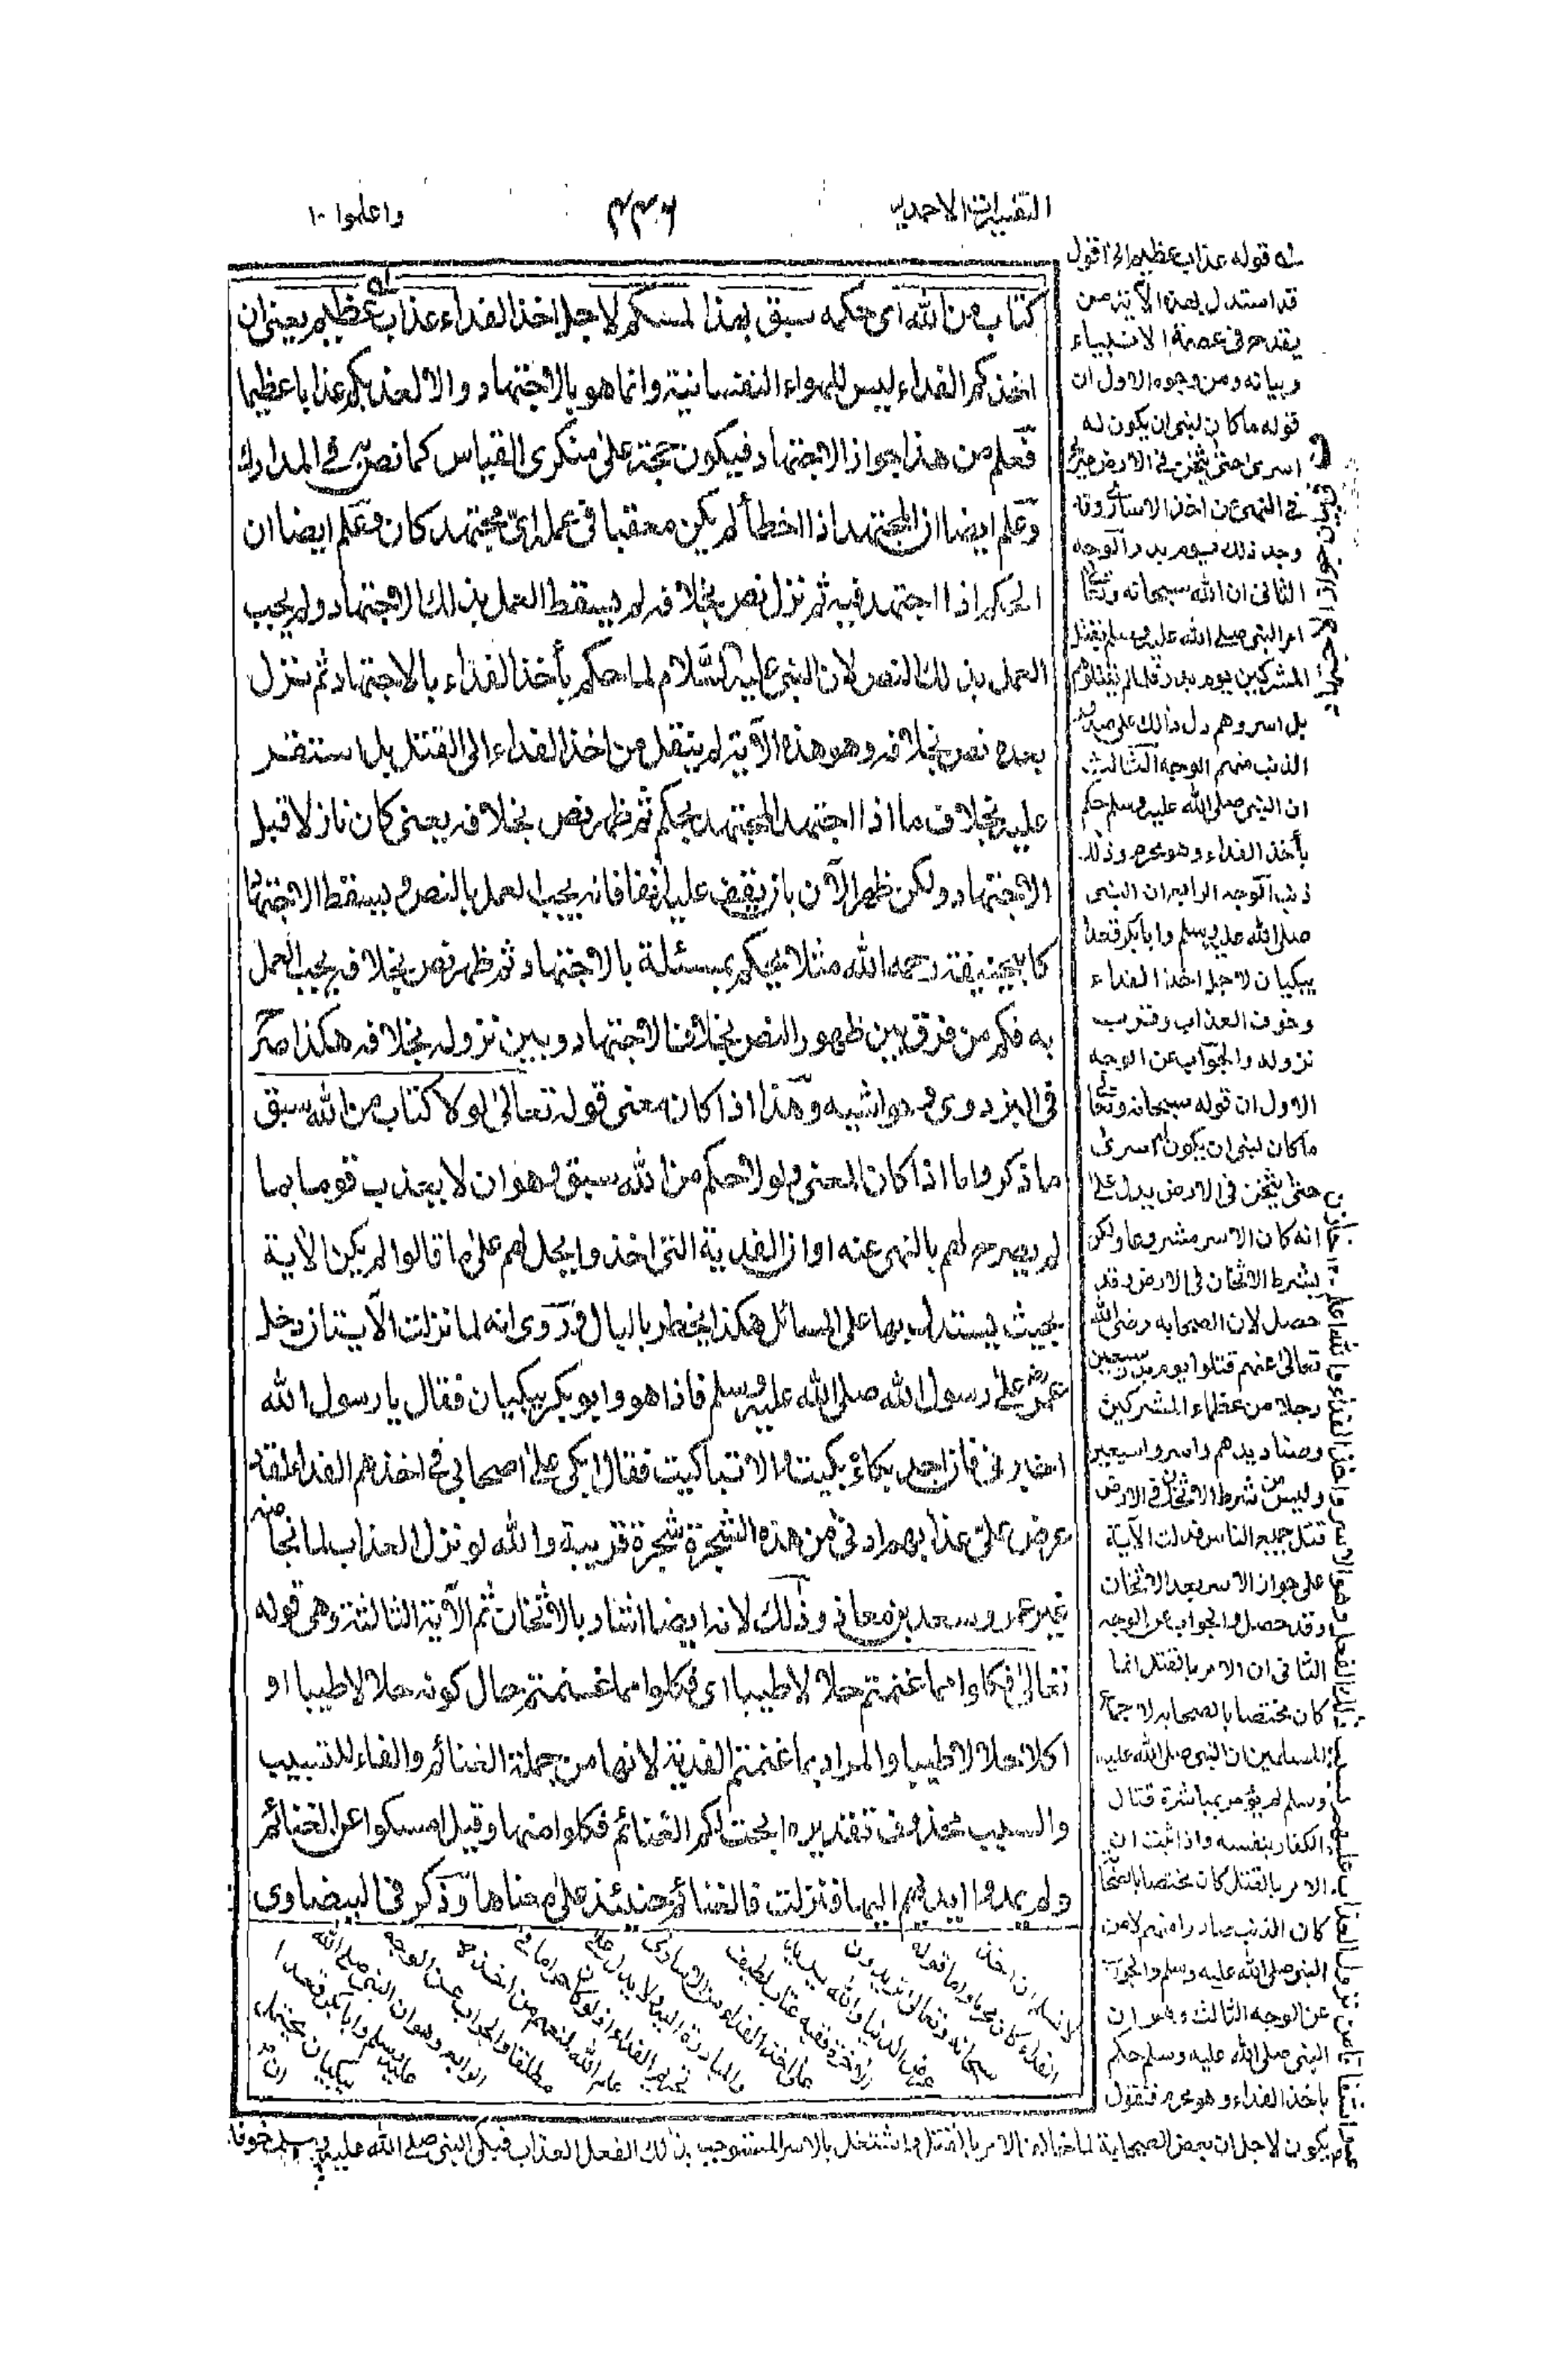 التفسيرات الاحمديه
٤٣٦
واعلموا ١٠
كتاب من الله اى حكمه سبق بهذا لمسكم لاجل اخذ الفداء عذاب عظيم يعنى ان
اخذكم الفداء ليس للهواء النفسانية وانما هو بالاجتهاد والا لعذبكم عذابا عظيما
فعلم من هذا جواز الاجتهاد فيكون حجة على منكرى القياس كما نص به فى المدارك
وعلم ايضا ان المجتهد اذا اخطأ لم يكن معقبا فى عمل اى مجتهد كان وعلم ايضا ان
الحكم اذا اجتهد فيه ثم نزل نص بخلافه لم يسقط العمل بذلك الاجتهاد ولم يجب
العمل بذلك النص لان النبى عليه السلام لما حكم بأخذ الفداء بالاجتهاد ثم نزل
بعده نص بخلافه وهو هذه الآية لم ينتقل من اخذ الفداء الى القتل بل استقر
عليه بخلاف ما اذا اجتهد المجتهد بحكم ثم ظهر نص بخلافه يعنى كان نازلا قبل
الاجتهاد ولكن ظهر الآن بان يقف عليه اتفاقا فانه يجب العمل بالنص ويسقط الاجتهاد
كابى حنيفة رحمه الله مثلا يحكم بمسئلة بالاجتهاد ثم ظهر نص بخلافه يجب العمل
به فكم من فرق بين ظهور النص بخلاف الاجتهاد وبين نزوله بخلافه هكذا صرح
فى البزدوى وحواشيه وهذا اذا كان معنى قوله تعالى لولا كتاب من الله سبق
ما ذكر واما اذا كان المعنى ولولا حكم من الله سبق وهو ان لا يعذب قوما بما
لم يصرح لهم بالنهى عنه او ان الفدية التى اخذوا يحل لهم على ما قالوا لم يكن الآية
بحيث يستدل بها على المسائل هكذا يخطر بالبال وروى انه لما نزلت الآيتان دخل
عمر رض على رسول الله صلى الله عليه وسلم فاذا هو وابو بكر يبكيان فقال يا رسول الله
اخبرنى فان اجد بكاء بكيت والا تباكيت فقال ابكى على اصحابى فى اخذهم الفداء لقد
عرض على عذابهم ادنى من هذه الشجرة شجرة قريبة والله لو نزل العذاب لما نجا منه
غير عمر وسعد بن معاذ وذلك لانه ايضا اشار بالاثخان ثم الآية الثالثة وهى قوله
تعالى فكلوا مما غنمتم حلالا طيبا اى فكلوا مما غنمتم حال كونه حلالا طيبا او
اكلا حلالا طيبا والمراد بما غنمتم الفدية لانها من جملة الغنائم والفاء للتسبيب
والسبب محذوف تقديره ابحت لكم الغنائم فكلوا منها وقيل امسكوا عن الغنائم
ولم يمدوا ايديهم اليها فنزلت فالغنائم حينئذ على معناها وذكر فى البيضاوى
له قوله عذاب عظيم الخ اقول
قد استدل بهذه الآية من
يقدح فى عصمة الانبياء
وبيانه ومن وجوه الاول ان
قوله ما كان لنبى ان يكون له
اسرى حتى يثخن فى الارض صريح
فى النهى عن اخذ الاسارى وقد
وجد ذلك يوم بدر الوجه
الثانى ان الله سبحانه وتعالى
امر النبى صلى الله عليه وسلم بقتل
المشركين يوم بدر فلما لم يقتلوهم
بل اسروهم دل ذلك على صدور
الذنب منهم الوجه الثالث
ان النبى صلى الله عليه وسلم حكم
بأخذ الفداء وهو محرم وذلك
ذنب الوجه الرابع ان النبى
صلى الله عليه وسلم وابا بكر قعدا
يبكيان لاجل اخذ الفداء
وخوف العذاب وقرب
نزوله والجواب عن الوجه
الاول ان قوله سبحانه وتعالى
ما كان لنبى ان يكون له اسرى
حتى يثخن فى الارض يدل على
انه كان الاسر مشروعا ولكن
بشرط الاثخان فى الارض وقد
حصل لان الصحابه رضى الله
تعالى عنهم قتلوا يوم بدر سبعين
رجلا من عظماء المشركين
وصناديدهم واسروا سبعين
وليس من شرط الاثخان فى الارض
قتل جميع الناس فدلت الآية
على جواز الاسر بعد الاثخان
وقد حصل والجواب عن الوجه
الثانى ان الامر بالقتل انما
كان مختصا بالصحابه لاجماع
المسلمين ان النبى صلى الله عليه
وسلم لم يؤمر بمباشرة قتال
الكفار بنفسه واذا ثبت ان
الامر بالقتل كان مختصا بالصحابة
كان الذنب صادرا منهم لا من
النبى صلى الله عليه وسلم والجواب
عن الوجه الثالث وهو ان
النبى صلى الله عليه وسلم حكم
باخذ الفداء وهو محرم فنقول
لا نسلم ان اخذ
الفداء كان محرما واما قوله
سبحانه وتعالى تريدون
عرض الدنيا والله يريد
الآخرة ففيه عتاب لطيف
على اخذ الفداء من الاسارى
والمبادرة اليه ولا يدل على
تحريم الفداء اذ لو كان حراما فى
علم الله لمنعهم من اخذه
مطلقا والجواب عن الوجه
الرابع وهو ان النبى صلى الله
عليه وسلم وابا بكر قعدا
يبكيان يحتمل
ان
يكون لاجل ان بعض الصحابة لما خالف الامر بالقتل واشتغل بالاسر استوجب بذلك الفعل العذاب فبكى النبى صلى الله عليه وسلم خوفا